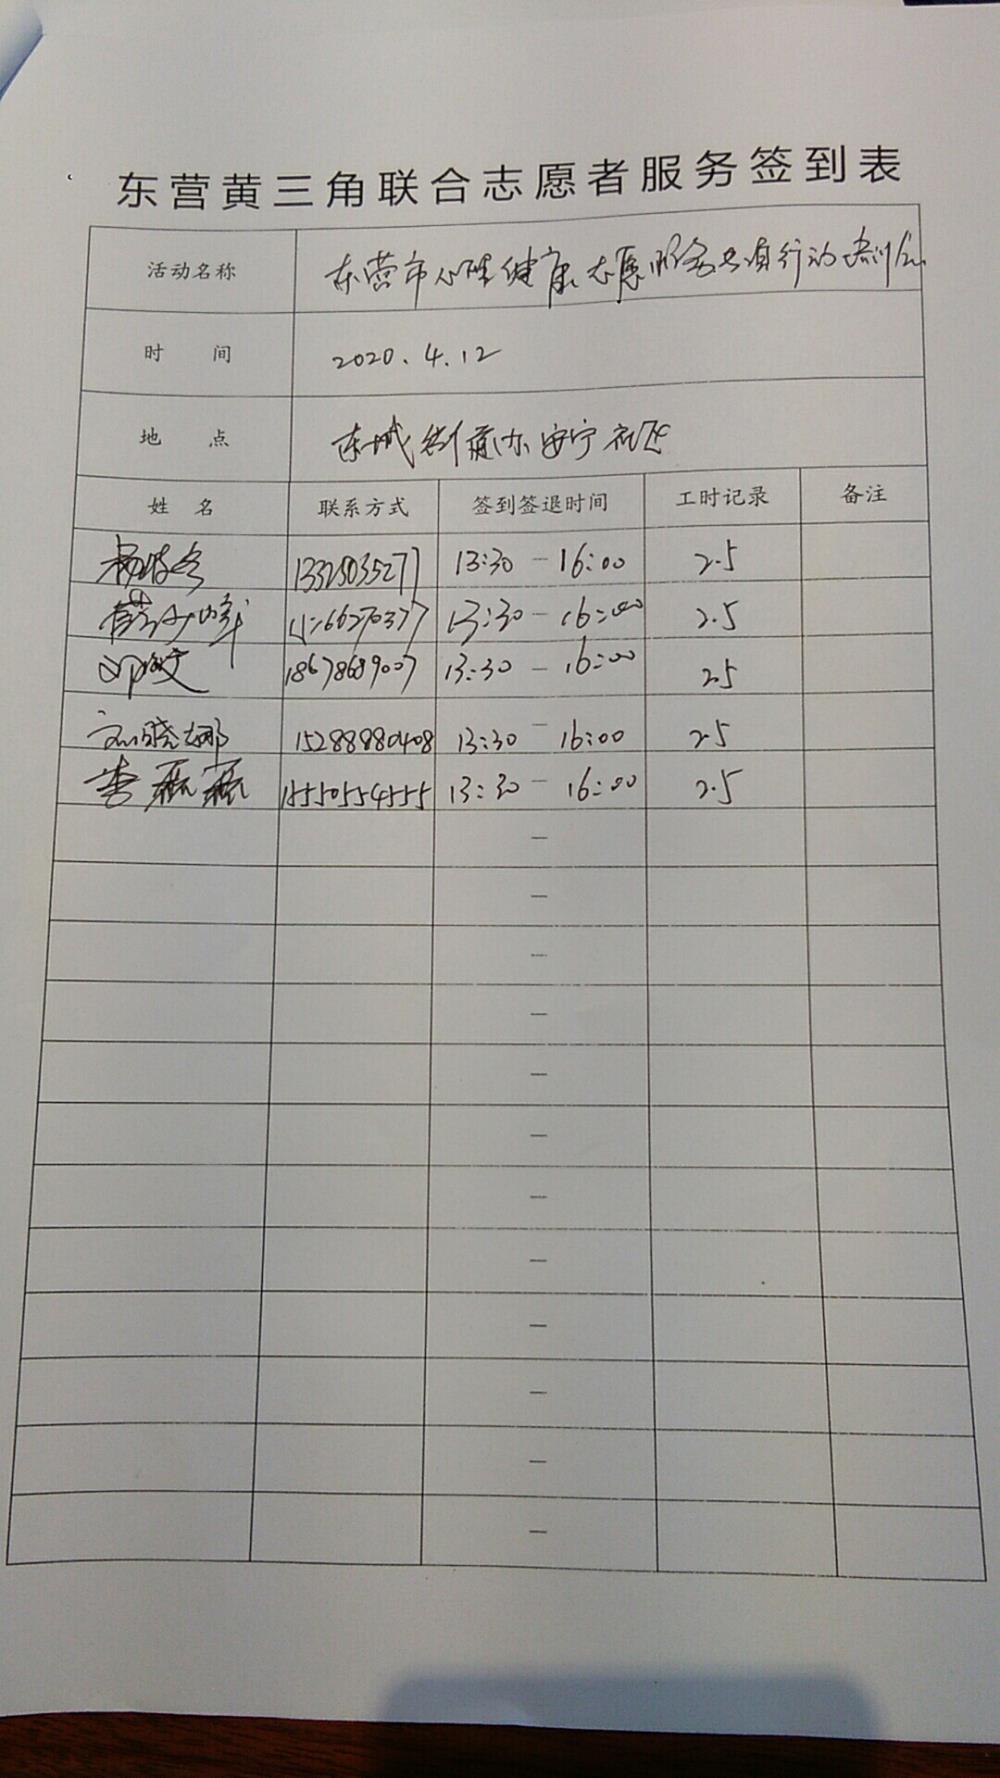 东营黄三角联合志愿者服务签到表
活动名称 东营市心理健康志愿服务专项行动培训会
时 间 2020.4.12
地 点 东城街道办安宁社区
姓 名 联系方式 签到签退时间 工时记录 备注
13:30 - 16:00 2.5
13:30 - 16:00 2.5
18678689007 13:30 - 16:00 2.5
刘晓娜 15288880408 13:30 - 16:00 2.5
李薇薇 15550554555 13:30 - 16:00 2.5
—
—
—
—
—
—
—
—
—
—
—
—